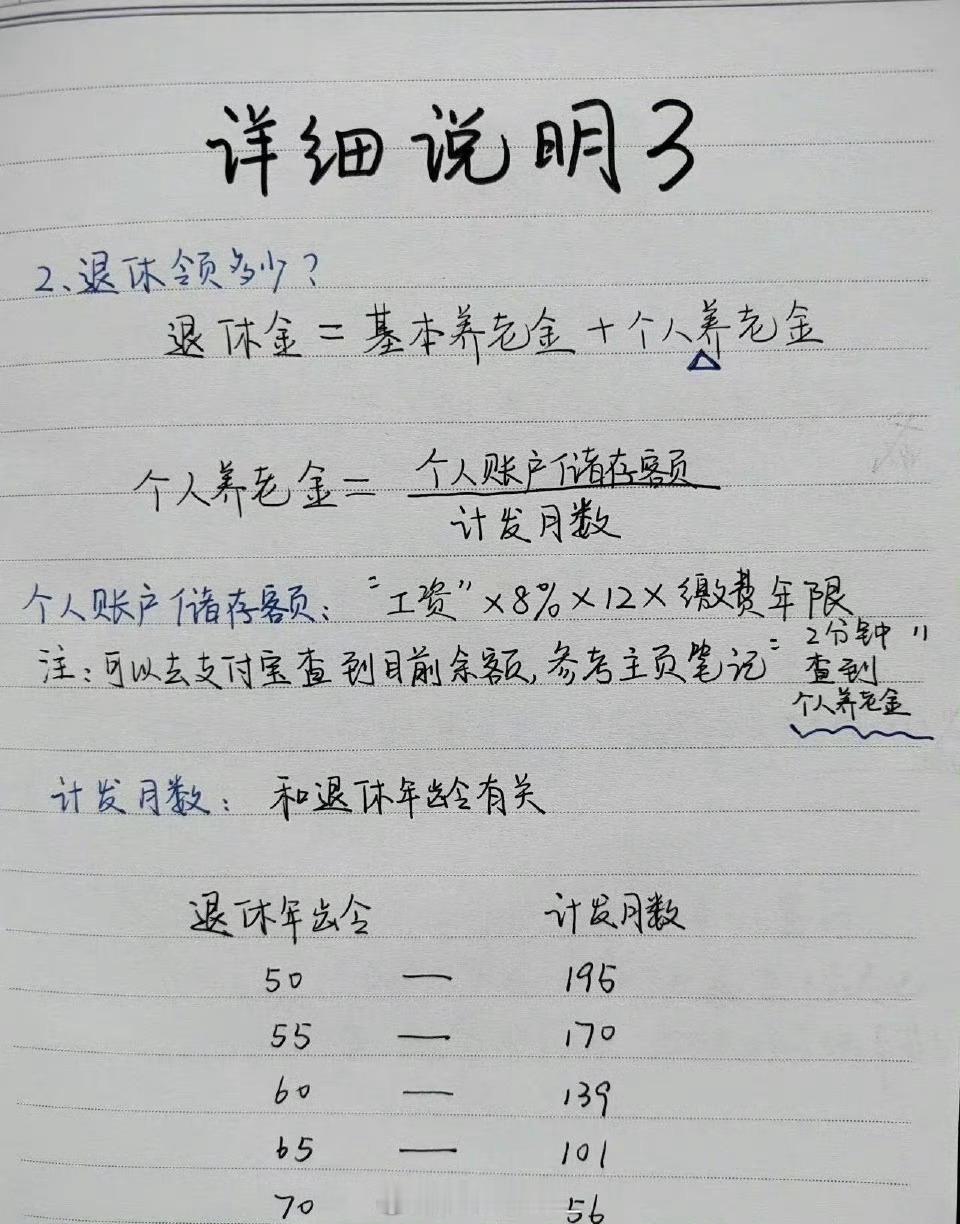 详细说明3
2、退休领多少?
退休金 = 基本养老金 + 个人养老金
个人养老金 = 个人账户储存额
计发月数
个人账户储存额: "工资" × 8% × 12 × 缴费年限
注: 可以去支付宝查到目前余额, 参考主页笔记 "2分钟
查到
个人养老金"
计发月数: 和退休年龄有关
退休年龄 计发月数
50 — 195
55 — 170
60 — 139
65 — 101
70 56